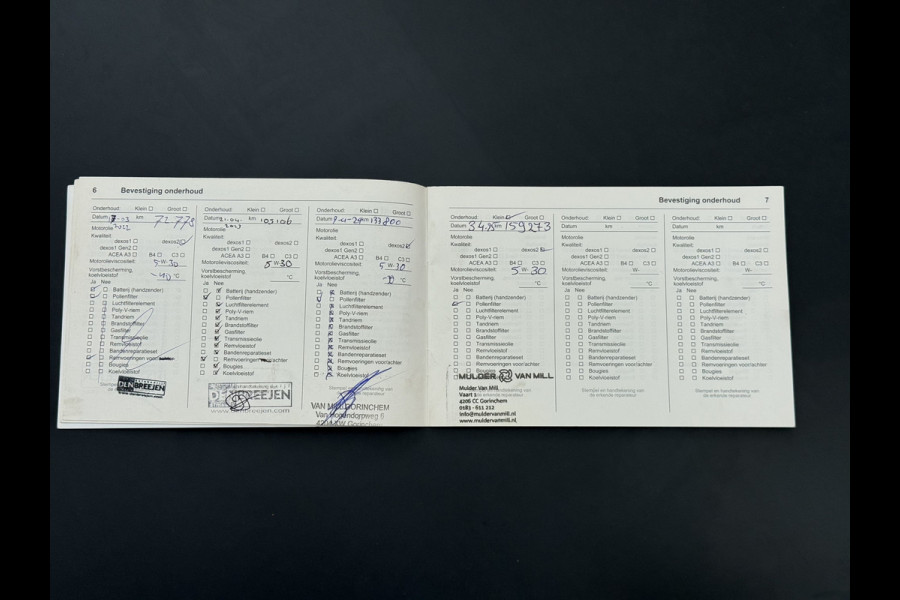 6 Bevestiging onderhoud
Onderhoud: Klein Groot
Datum km 72.778
Motorolie 2022
Kwaliteit:
dexos1 dexos2
dexos1 Gen2
ACEA A3 B4 C3
Motorolieviscositeit: 5 W-30
Vorstbescherming,
koelvloeistof -40 °C
Ja Nee
Batterij (handzender)
Pollenfilter
Luchtfilterelement
Poly-V-riem
Tandriem
Brandstoffilter
Gasfilter
Transmissieolie
Remvloeistof
Bandenreparatieset
Remvoeringen
Bougies
Koelvloeistof
Onderhoud: Klein Groot
Datum km 103.106
Motorolie
Kwaliteit:
dexos1 dexos2
dexos1 Gen2
ACEA A3 B4 C3
Motorolieviscositeit: 5 W-30
Vorstbescherming,
koelvloeistof °C
Ja Nee
Batterij (handzender)
Pollenfilter
Luchtfilterelement
Poly-V-riem
Tandriem
Brandstoffilter
Gasfilter
Transmissieolie
Remvloeistof
Bandenreparatieset
Remvoeringen
Bougies
Koelvloeistof
Onderhoud: Klein Groot
Datum km 133800
Motorolie
Kwaliteit:
dexos1 dexos2
dexos1 Gen2
ACEA A3 B4 C3
Motorolieviscositeit: 5 W-30
Vorstbescherming,
koelvloeistof °C
Ja Nee
Batterij (handzender)
Pollenfilter
Luchtfilterelement
Poly-V-riem
Tandriem
Brandstoffilter
Gasfilter
Transmissieolie
Remvloeistof
Bandenreparatieset
Remvoeringen voor/achter
Bougies
Koelvloeistof
Stempel en handtekening van
VAN MILL GORINCHEM
Bevestiging onderhoud 7
Onderhoud: Klein Groot
Datum km 159273
Motorolie
Kwaliteit:
dexos1 dexos2
dexos1 Gen2
ACEA A3 B4 C3
Motorolieviscositeit: 5 W-30
Vorstbescherming,
koelvloeistof °C
Ja Nee
Batterij (handzender)
Pollenfilter
Luchtfilterelement
Poly-V-riem
Tandriem
Brandstoffilter
Gasfilter
Transmissieolie
Remvloeistof
Bandenreparatieset
Remvoeringen voor/achter
Bougies
MULDER VAN MILL
Mulder Van Mill
Vaart 1
4206 CC Gorinchem
0183 - 611 212
info@muldervanmill.nl
www.muldervanmill.nl
Onderhoud: Klein Groot
Datum km
Motorolie
Kwaliteit:
dexos1 dexos2
dexos1 Gen2
ACEA A3 B4 C3
Motorolieviscositeit: W-
Vorstbescherming,
koelvloeistof °C
Ja Nee
Batterij (handzender)
Pollenfilter
Luchtfilterelement
Poly-V-riem
Tandriem
Brandstoffilter
Gasfilter
Transmissieolie
Remvloeistof
Bandenreparatieset
Remvoeringen voor/achter
Bougies
Koelvloeistof
Stempel en handtekening van
de erkende reparateur
Onderhoud: Klein Groot
Datum km
Motorolie
Kwaliteit:
dexos1 dexos2
dexos1 Gen2
ACEA A3 B4 C3
Motorolieviscositeit: W-
Vorstbescherming,
koelvloeistof °C
Ja Nee
Batterij (handzender)
Pollenfilter
Luchtfilterelement
Poly-V-riem
Tandriem
Brandstoffilter
Gasfilter
Transmissieolie
Remvloeistof
Bandenreparatieset
Remvoeringen voor/achter
Bougies
Koelvloeistof
Stempel en handtekening van
de erkende reparateur